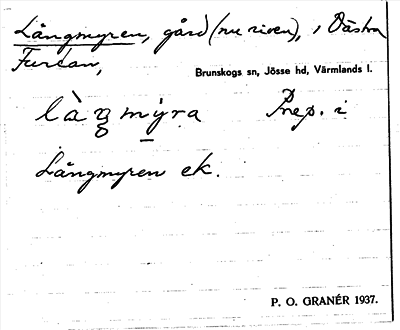 Långmyren, gård (nu riven), i Västra
Furtan,
Brunskogs sn, Jösse hd, Värmlands l.
làŋmýra Prep. i
Långmyren ek.
P. O. GRANÉR 1937.